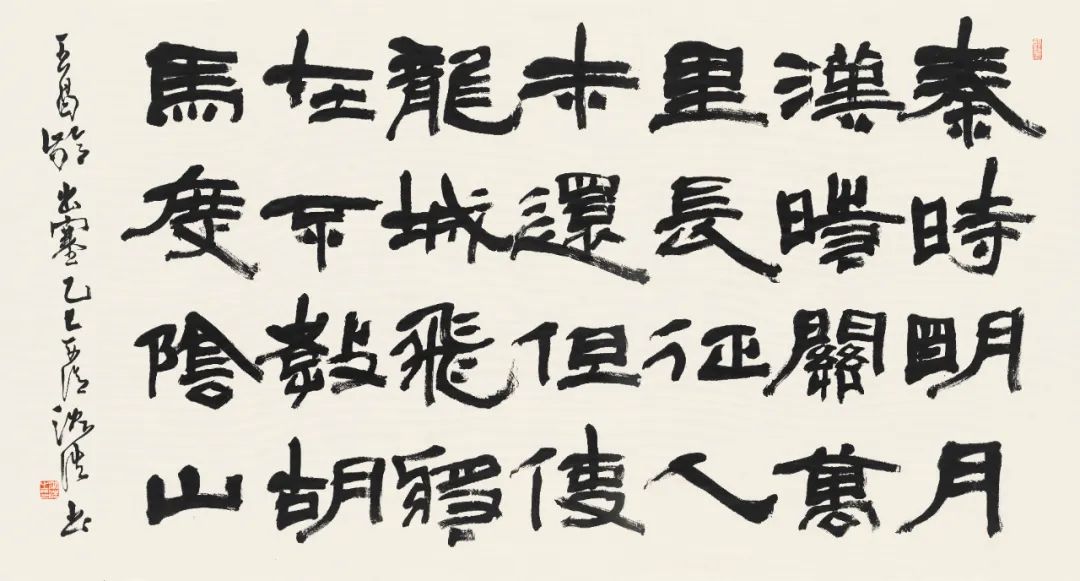 秦時明月
漢時關萬
里長征人
未還但使
龍城飛將
在不教胡
馬度陰山
王昌齡出塞乙巳沈浩書